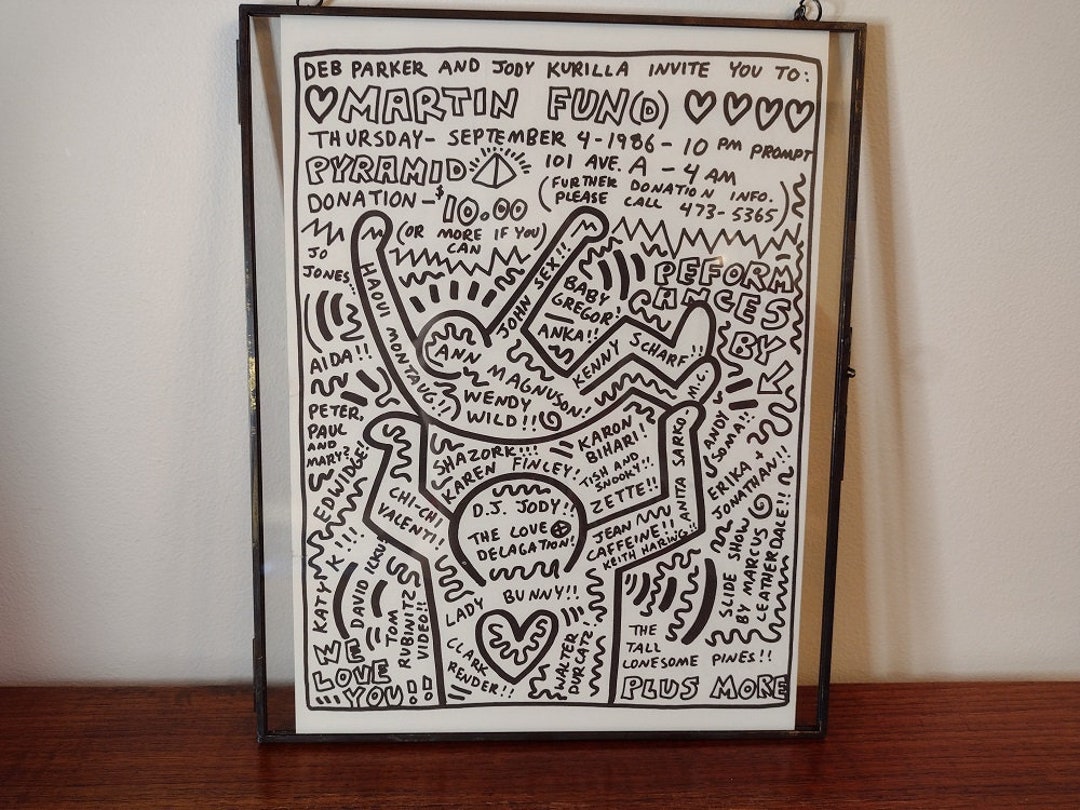 DEB PARKER AND JODY KURILLA INVITE YOU TO:
MARTIN FUN(D)
THURSDAY- SEPTEMBER 4-1986-10 PM PROMPT
PYRAMID 101 AVE. A - 4 AM
DONATION-$10.00 (FURTHER DONATION INFO.
PLEASE CALL 473-5365)
(OR MORE IF YOU
CAN)
PEFORM
ANCES
BY
JO
JONES...
HAOUI MONTAUG!!
JOHN SEX!!
BABY
GREGOR!
ANKA!!
KENNY SCHARF!!
M.C.
AIDA!!
ANN MAGNUSON!
WENDY
WILD!!
ANDY
SOMA!!
PETER,
PAUL
AND
MARY?
EDWIDGE!
SHAZORK!!!
KAREN FINLEY!
KARON
BIHARI!
TISH AND
SNOOKY!!
ZETTE!!
ANITA SARKO
ERIKA +
JONATHAN!!
CHI-CHI
VALENTI!
D.J. JODY!!
THE LOVE
DELAGATION!
JEAN
CAFFEINE!!
KEITH HARING!!
SLIDE SHOW
BY MARCUS
LEATHERDALE!!
KATY K!!!
DAVID ICKU!
TOM
RUBINITZ
VIDEO!!
LADY BUNNY!!
CLARK
RENDER!!
WALTER
DURCATZ!
THE
TALL
LONESOME PINES!!
WE
LOVE
YOU!!
PLUS MORE